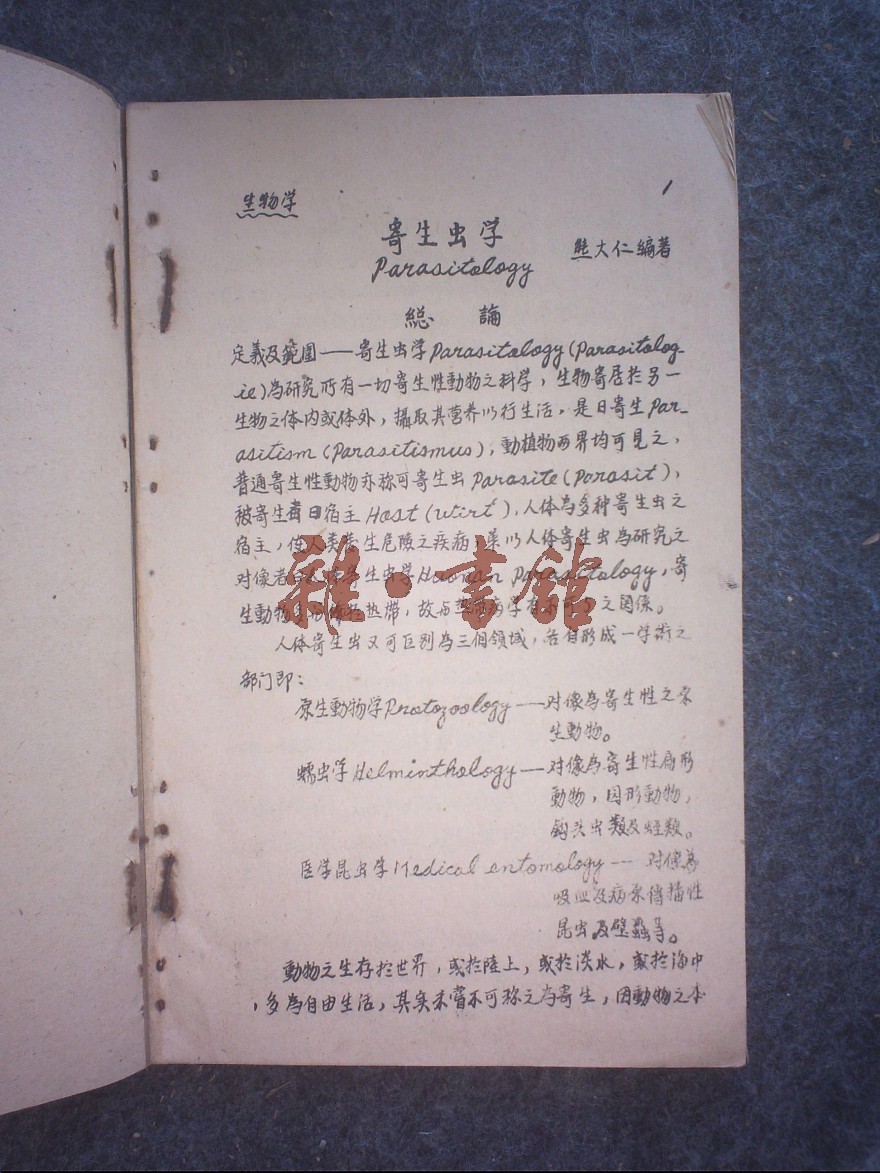 生物学
1
寄生虫学
熊大仁编著
Parasitology
総 論
定義及範圍——寄生虫学Parasitology(Parasitolog-
ie)為研究所有一切寄生性動物之科学，生物寄居於另一
生物之体内或体外，攝取其营养以行生活，是曰寄生Par-
asitism(Parasitismus)，動植物两界均可見之，
普通寄生性動物亦称可寄生虫Parasite(Parasit)，
被寄生者曰宿主Host(Wirt)，人体為多种寄生虫之
宿主，使人类 生危險之疾病，某以人体寄生虫為研究之
对像者 寄生虫学Human Parasitology，寄
生動物 热带，故与 病学有 之関係。
人体寄生虫又可区别為三個領域，各自形成一学術之
部门即：
原生動物学Protozoology——对像為寄生性之原
生動物。
蠕虫学Helminthology——对像為寄生性扁形
動物，圆形動物，
鈎头虫類及蛭類。
医学昆虫学Medical entomology——对像為
吸血及病原傳播性
昆虫及壁蝨等。
動物之生存於世界，或於陸上，或於淡水，或於海中
，多為自由生活，其实未嘗不可称之為寄生，因動物之本
雜·書館